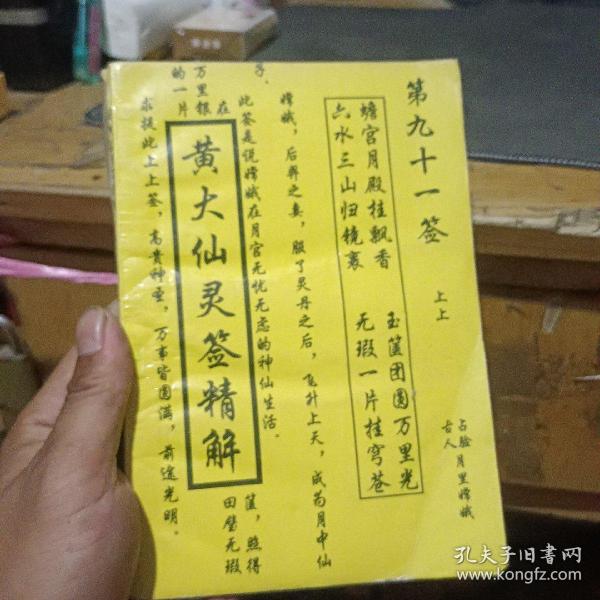 第九十一签
上上
占验月里嫦娥
古人
蟾宫月殿桂飘香
玉筐团圆万里光
六水三山归镜裹
无瑕一片挂穹苍
嫦娥,后羿之妻,服了灵丹之后,飞升上天,成为月中仙
子。
此签是说嫦娥在月宫无忧无虑的神仙生活。
筐,照得
万里银在
田璧无瑕
的一片
求援此上上签,高贵神圣,万事皆圆满,前途光明。
黄大仙灵签精解
孔夫子旧书网
www.kongfz.com